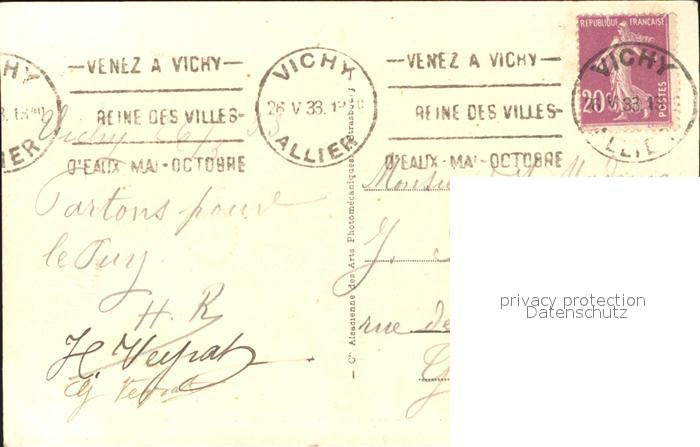 VICHY
ALLIER
—VENEZ A VICHY—
REINE DES VILLES-
D'EAUX-MAI-OCTOBRE
VICHY
26 V 33. 1
ALLIER
—VENEZ A VICHY—
REINE DES VILLES-
D'EAUX-MAI-OCTOBRE
REPUBLIQUE FRANÇAISE
20c
POSTES
VICHY
V 33. 1
ALLIER
Vichy 26/5 33
Partons pour
le Puy
H. R
H. Veyrat
— Cie Alsacienne des Arts Photomécaniques, Strasbourg
J.
rue de
G
privacy protection
Datenschutz